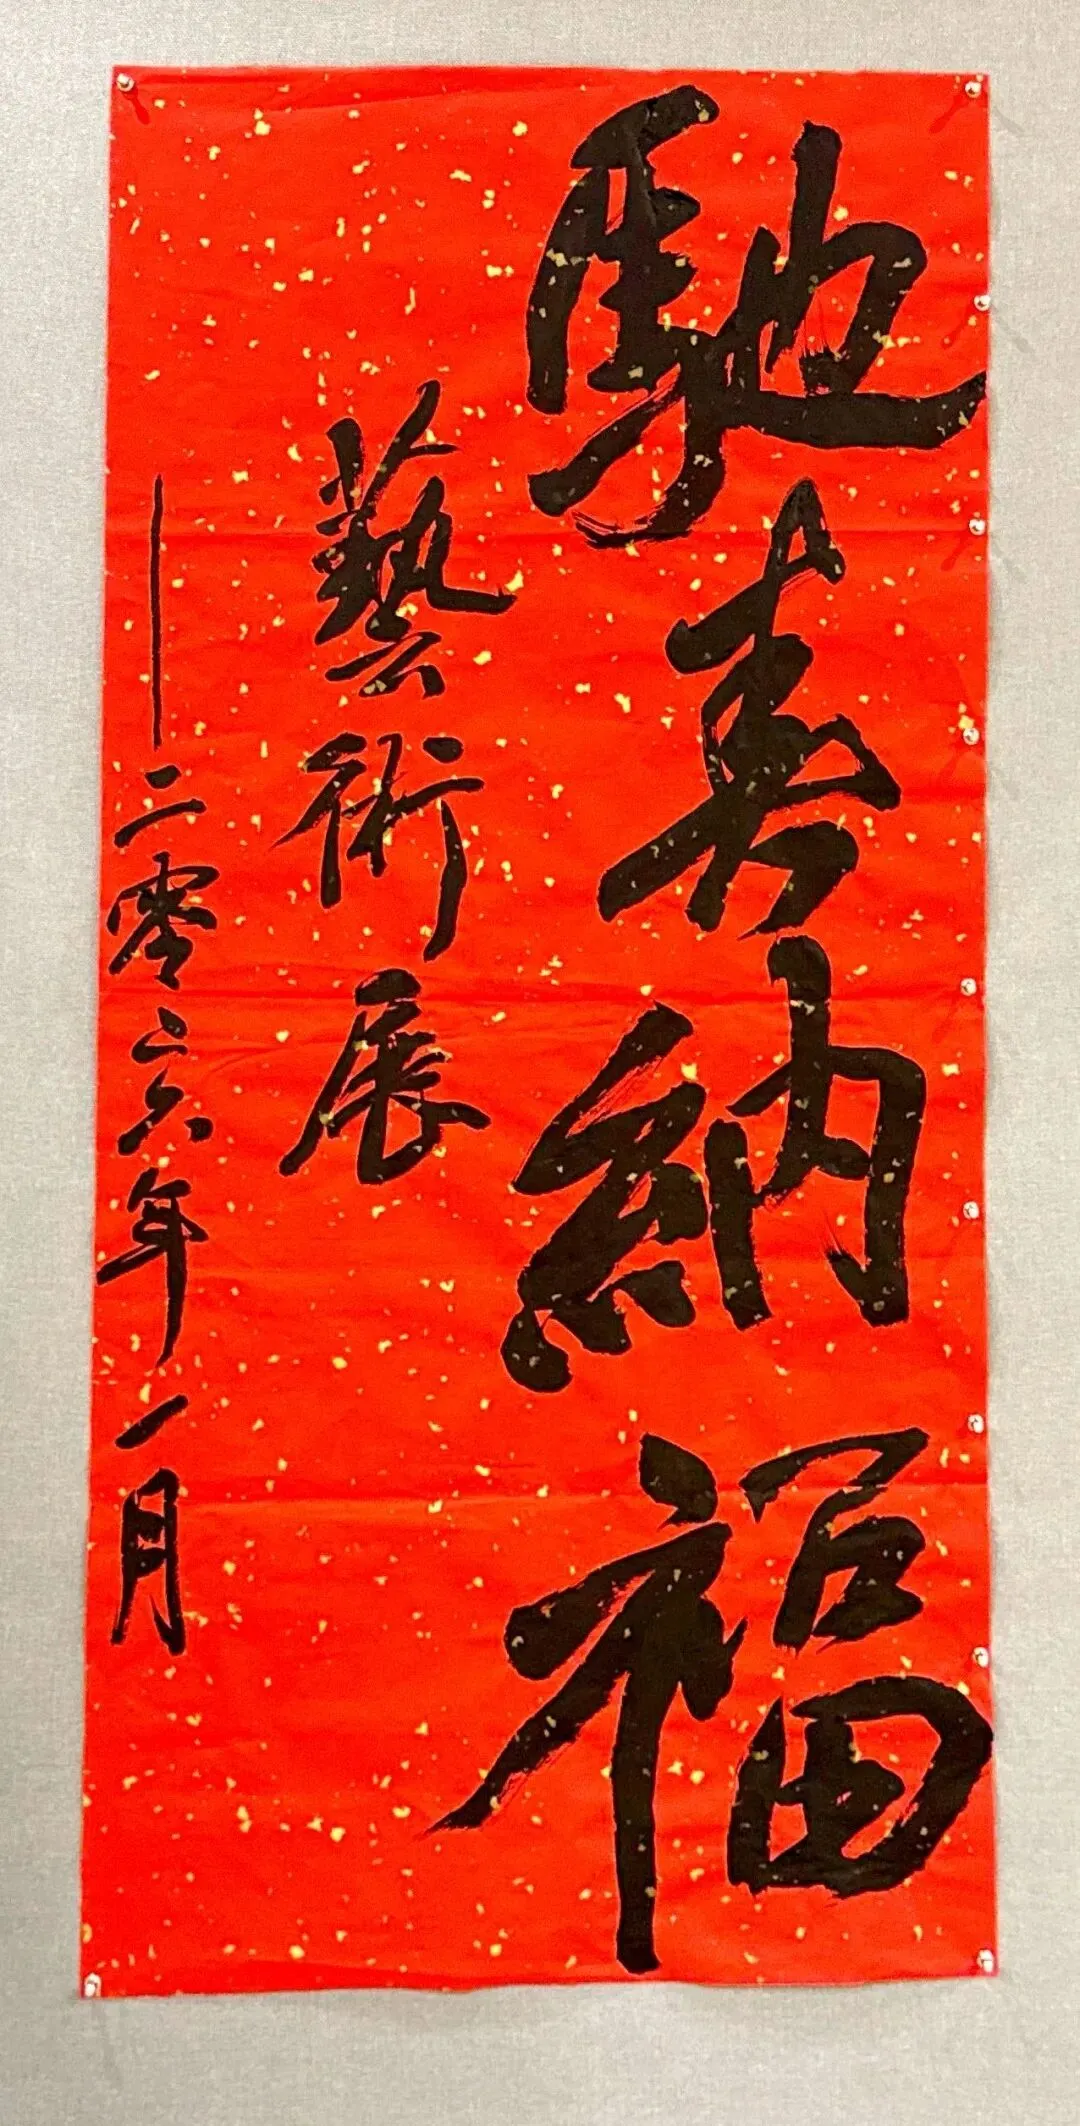 馳 納福
藝術展
——二零二六年一月